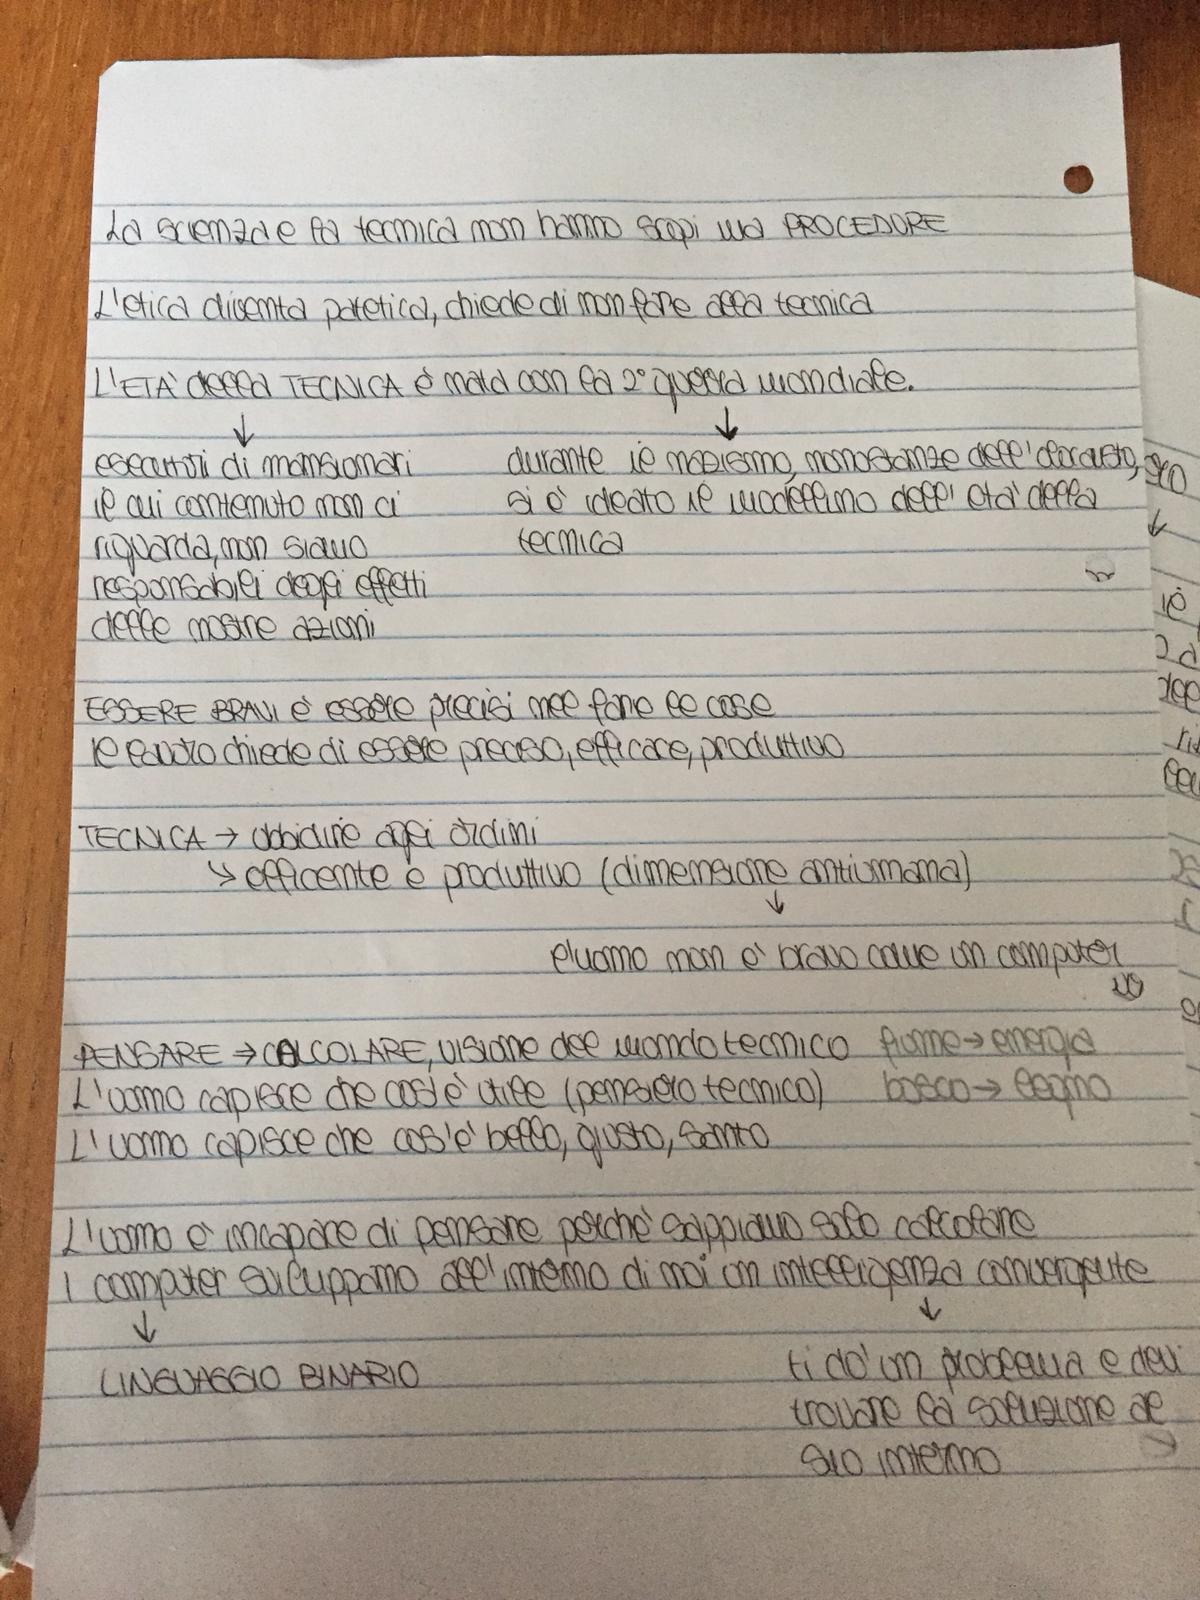 La scienza e la tecnica non hanno scopi ma PROCEDURE
L'etica diventa patetica, chiede di non fare alla tecnica
L'ETA' della TECNICA è nata con la 2° guerra mondiale.
↓ ↓
esecutori di mansionari
il cui contenuto non ci
riguarda, non siamo
responsabili degli effetti
delle nostre azioni
durante il nazismo, nonostanze dell'
si è ideato il modellino dell' età della
tecnica
ESSERE BRAVI è essere precisi nel fare le cose
il lavoro chiede di essere preciso, efficace, produttivo
TECNICA → ubbidire agli ordini
↳ efficente e produttivo (dimensione antiumana)
↓
l'uomo non è bravo come un computer
PENSARE → CALCOLARE, VISIONE del mondo tecnico fiume → energia
L'uomo capisce che cos'è utile (pensiero tecnico) bosco → legno
L'uomo capisce che cos'è bello, giusto, santo
L'uomo è incapace di pensare perchè sappiamo solo calcolare
I computer sviluppano all'interno di noi un intelligenza convergente
↓ ↓
LINGUAGGIO BINARIO
ti do' un problema e devi
trovare la soluzione al
suo interno